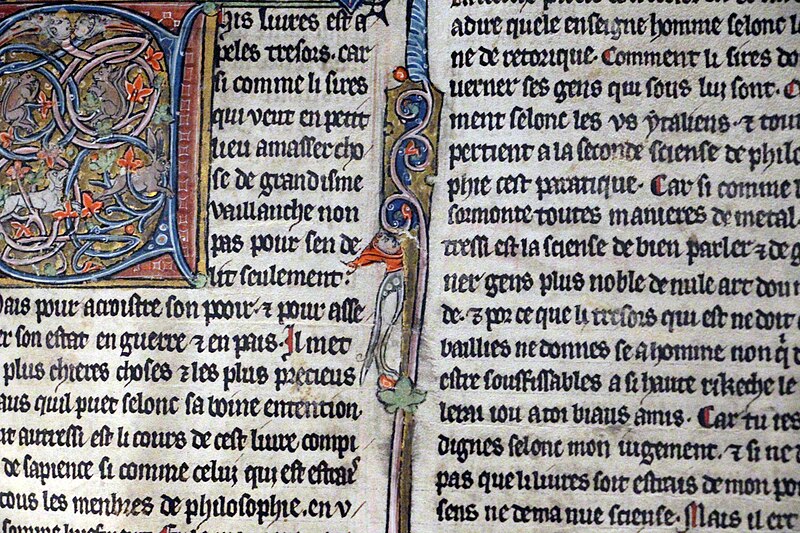 his liures est a
peles tresors. car
si comme li sires
qui veut en petit
lieu amasser cho
se de grandisme
vaillanche non
pas pour sen de
lit seulement.
ais pour acroistre son pooir. ⁊ pour asse
er son estat en guerre ⁊ en pais. Il met
plus chieres choses ⁊ les plus precieus
aus quil puet selonc sa boine entention.
autressi est li cours de cest liure compi
de sapience si comme celui qui est estrais
tous les menbres de philosophie. en v
adire quele enseigne homme selonc la
ne de retorique. Comment li sires do
uerner ses gens qui sous lui sont.
ment selonc les vs ytaliens. ⁊ tout
pertient a la seconde sciense de philo
phie cest pratique. Car si comme l
sormonte toutes manieres de metal.
tressi est la sciense de bien parler ⁊ de g
ner gens plus noble de nule art dou
de. ⁊ por ce que li tresors qui est ne doit
baillies ne donnes se a homme non qi
estre souffissables a si haute rikeche le
lerai iou a toi biaus amis. Car tu ies
dignes selonc mon iugement. ⁊ si ne
pas que li liures soit estrais de mon po
sens ne de ma nue sciense. Mais il ert